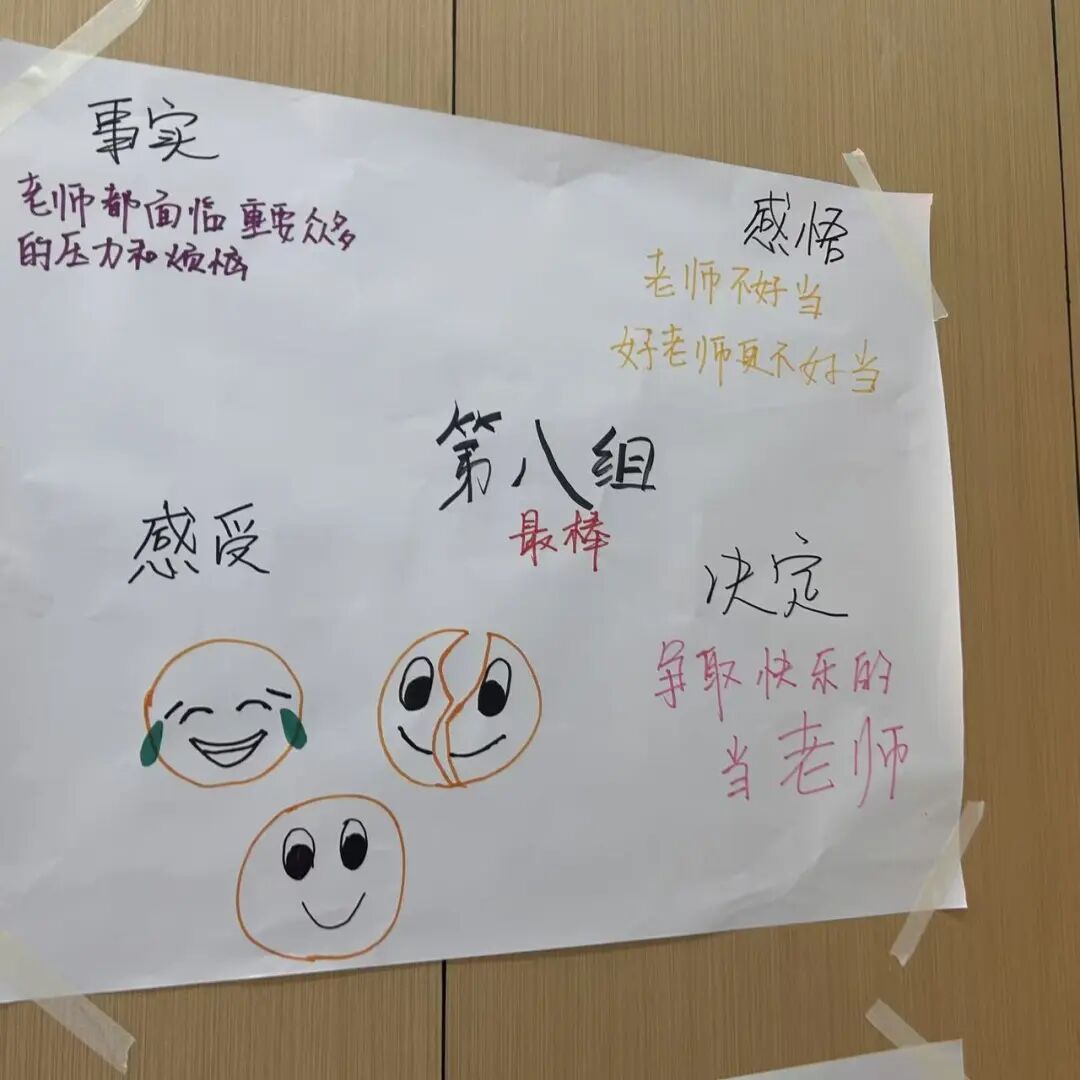 事实
老师都面临重要众多
的压力和烦恼
感悟
老师不好当
好老师更不好当
第八组
最棒
感受
决定
争取快乐的
当老师